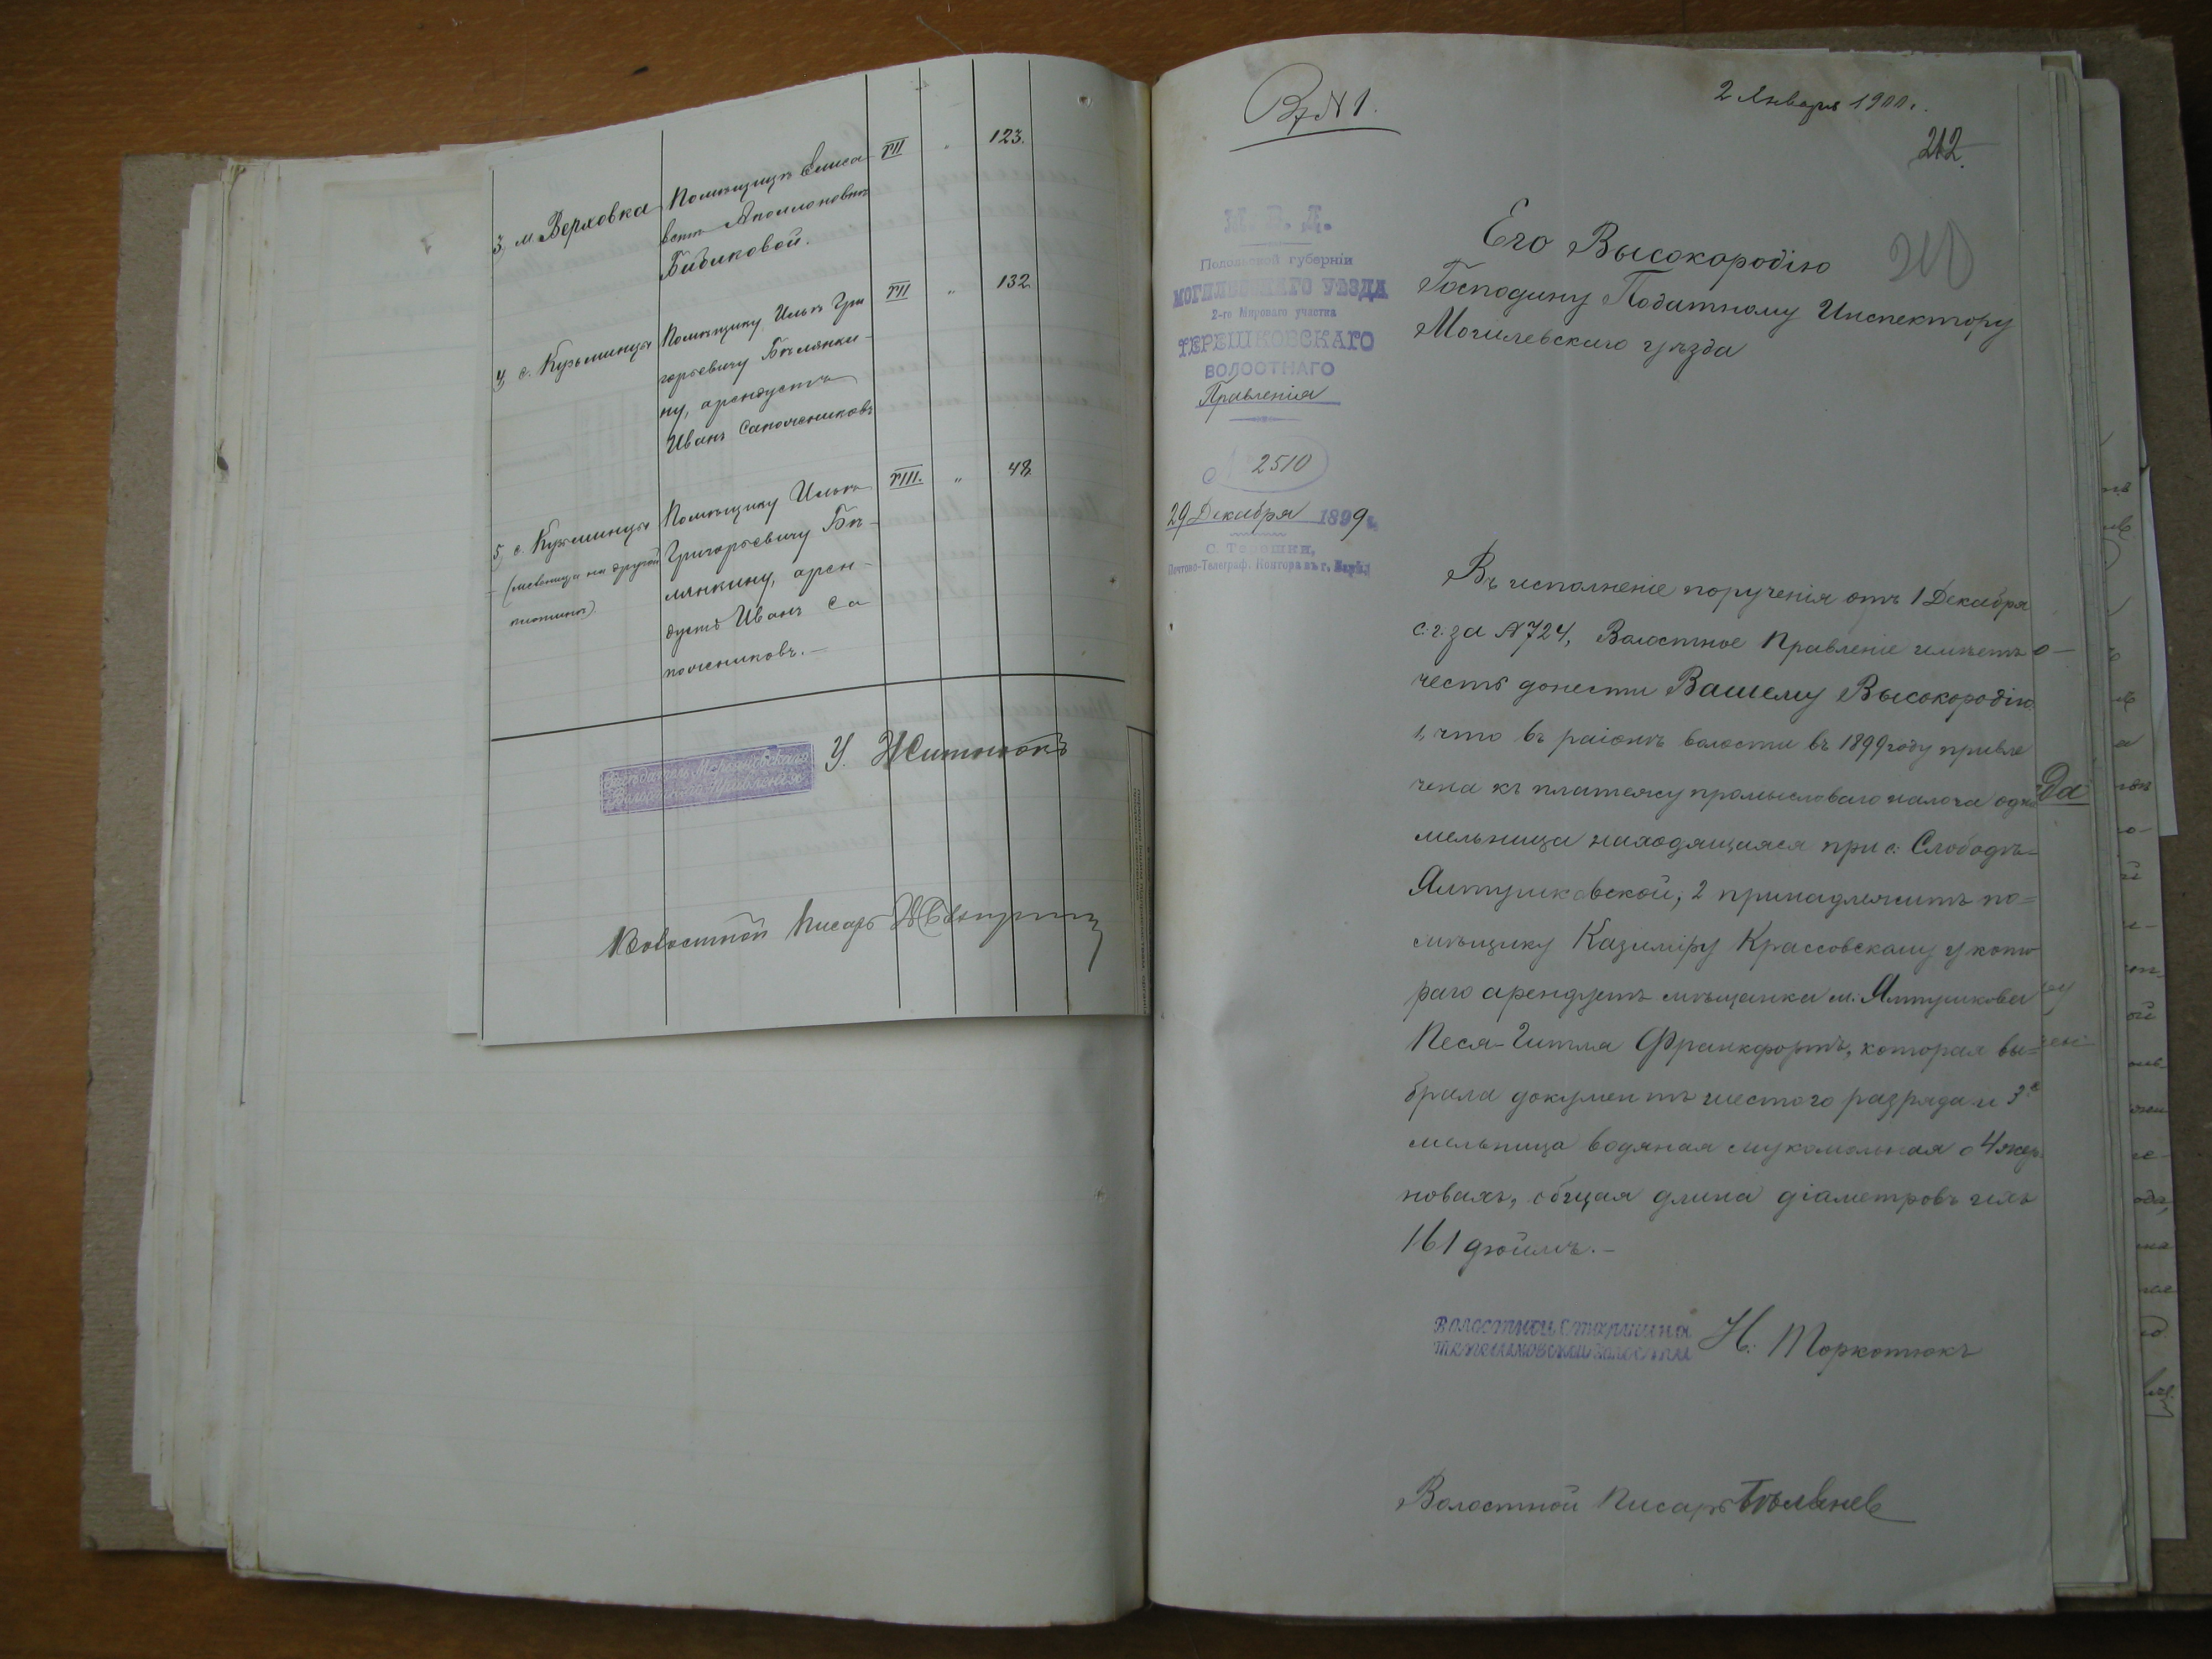 3, м. Верховка
Помѣщицѣ Елиса
ветѣ Аполлоновнѣ
Бибиковой.
VII " 123.
4, с. Кузьминцы
Помѣщику Ильѣ Гри
горьевичу Бѣлянки-
ну, арендуетъ
Иванъ Сапожниковъ
VII " 132
5, с. Кузьминцы
(мельница на другой
плотинѣ)
Помѣщику Ильѣ
Григорьевичу Бѣ-
лянкину, арен-
дуетъ Иванъ Са
пожниковъ.—
VIII. " 48.
Волостнаго Правленія
У. Житнюкъ
Волостной Писарь
Вх N 1.
2 Января 1900 г.
212.
210
М. В. Д.
Подольской губерніи
МОГИЛЕВСКАГО УѢЗДА
2-го Мироваго участка
ТЕРЕШКОВСКАГО
ВОЛОСТНАГО
Правленія
№ 2510
29 Декабря 1899 г.
С. Терешки,
Почтово-Телеграф. Контора въ г.
Его Высокородію
Господину Податному Инспектору
Могилевскаго уѣзда
Въ исполненіе порученія отъ 1 Декабря
с. г. за N 724, Волостное Правленіе имѣетъ
честь донести Вашему Высокородію
1, что въ районѣ волости въ 1899 году привле
чена къ платежу промысловаго налога одна
мельница находящаяся при с. Слободѣ=
Ялтушковской; 2 принадлежитъ по=
мѣщику Казиміру Крассовскому у кото
раго арендуетъ мѣщанка м. Ялтушкова
Песя-Гитля Франкфортъ, которая вы=
брала документъ шестого разряда и 3е
мельница водяная мукомольная о 4 жер
новахъ, общая длина діаметровъ ихъ
161 дюймъ.—
Волостной Старшина
Терешковской волости
Н. Торкотюкъ
Волостной Писарь